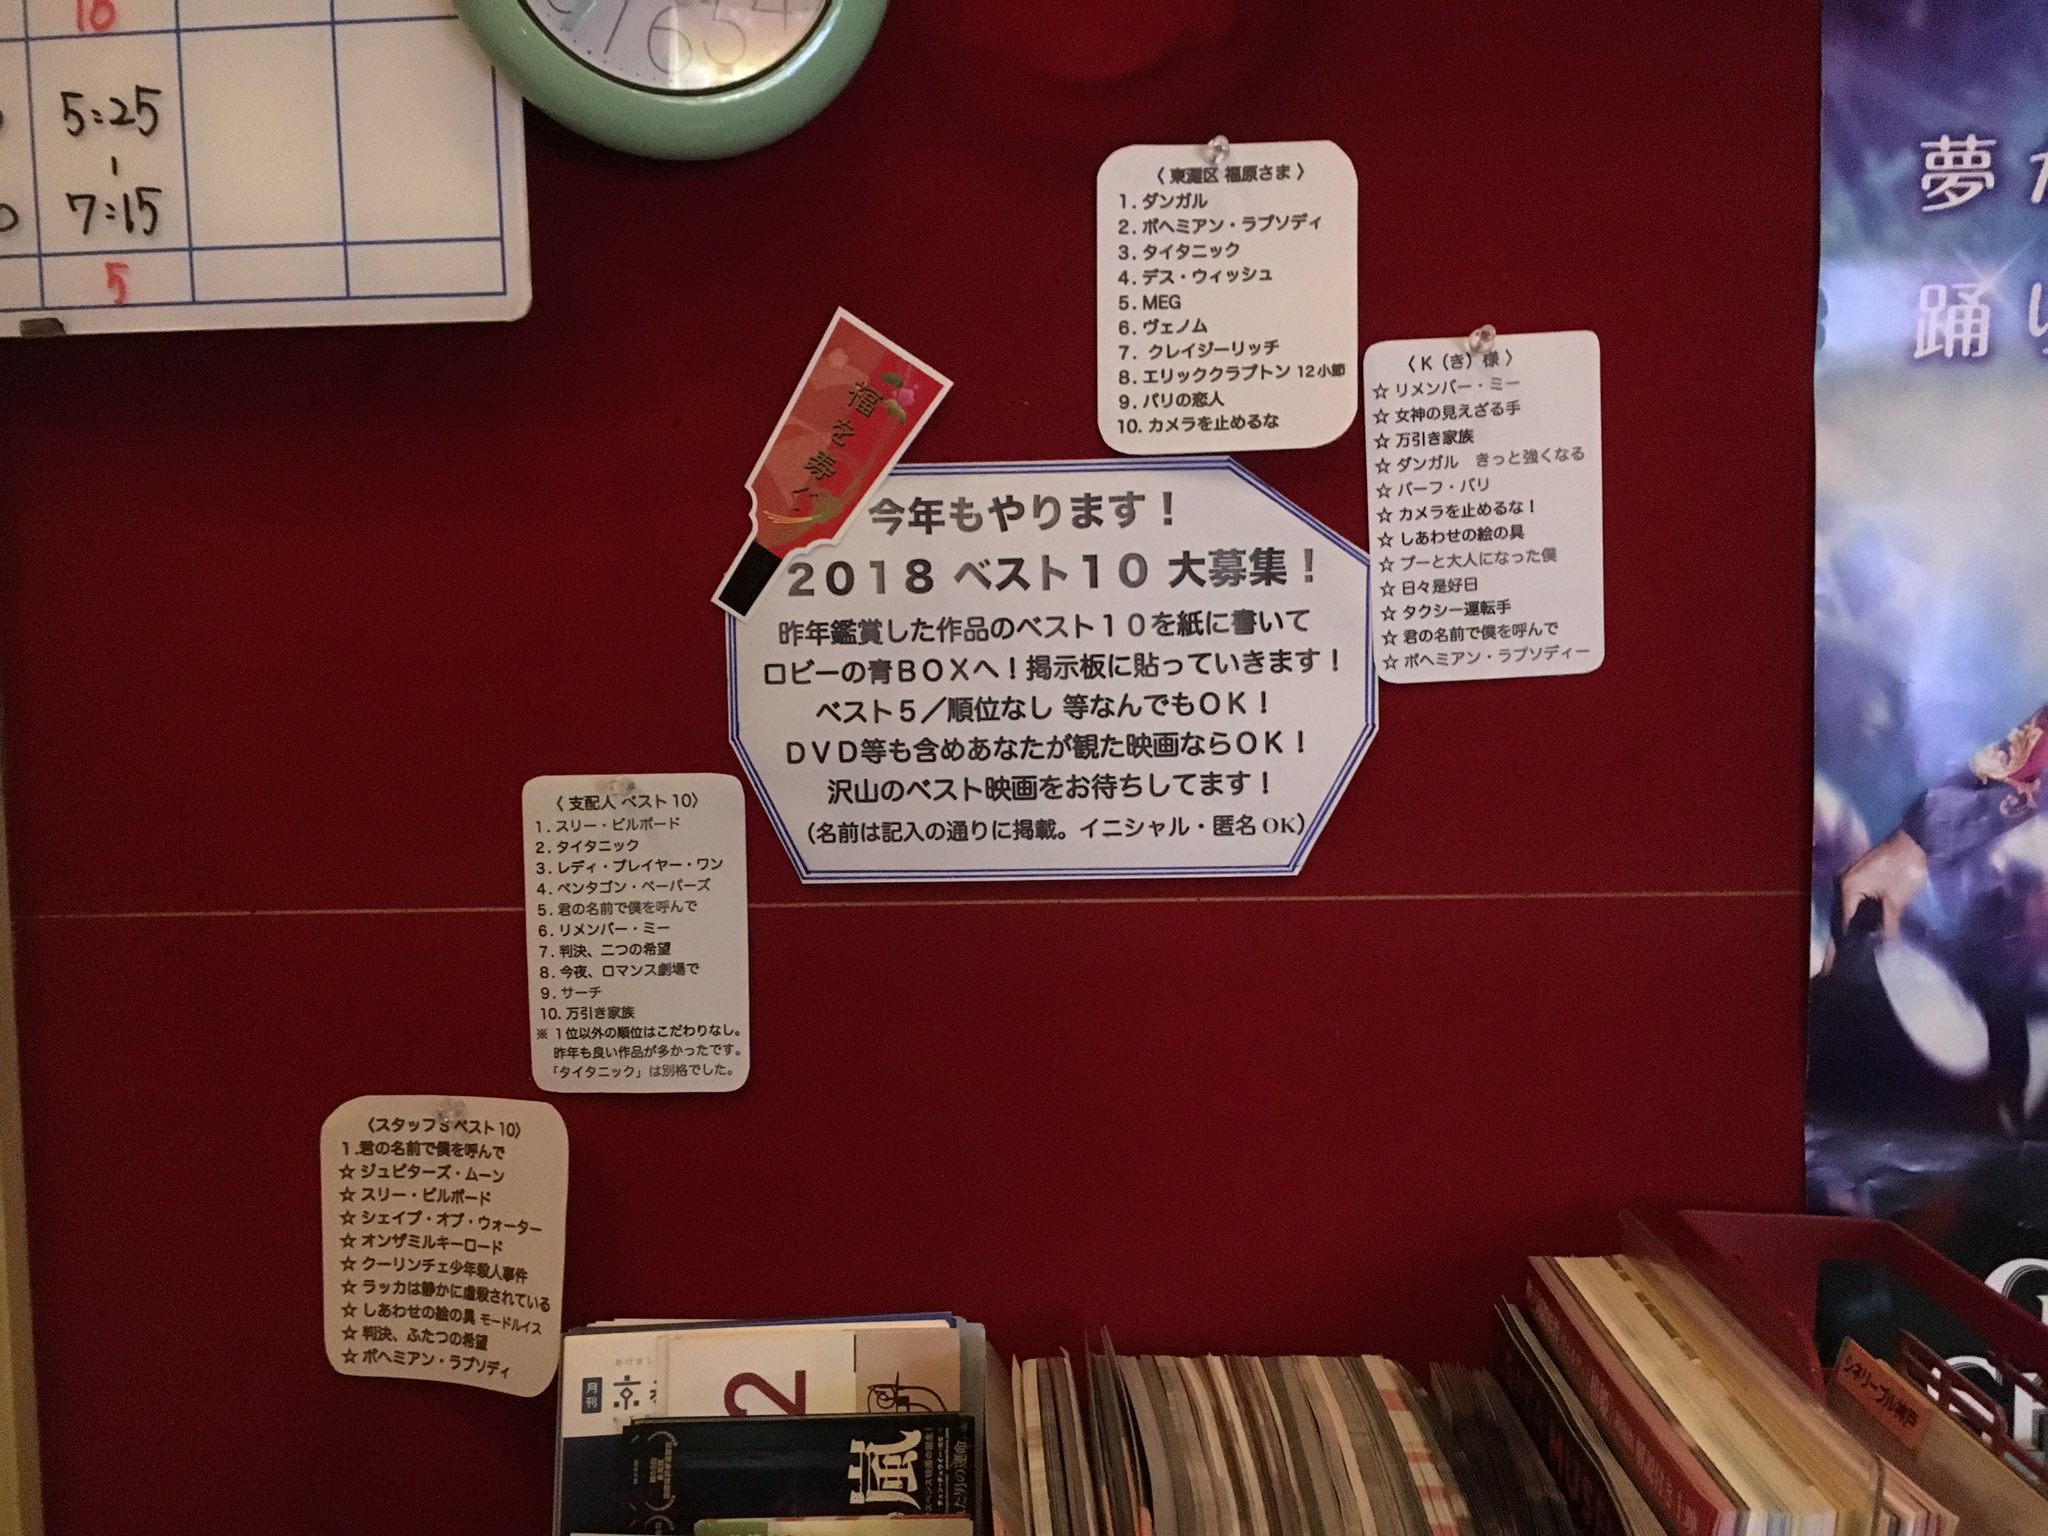 10
5:25
7:15
5
6 5 4
〈 東灘区 福原さま 〉
1. ダンガル
2. ボヘミアン・ラプソディ
3. タイタニック
4. デス・ウィッシュ
5. MEG
6. ヴェノム
7. クレイジーリッチ
8. エリッククラプトン 12小節
9. パリの恋人
10. カメラを止めるな
〈 K（き）様 〉
☆ リメンバー・ミー
☆ 女神の見えざる手
☆ 万引き家族
☆ ダンガル きっと強くなる
☆ バーフ・バリ
☆ カメラを止めるな！
☆ しあわせの絵の具
☆ プーと大人になった僕
☆ 日々是好日
☆ タクシー運転手
☆ 君の名前で僕を呼んで
☆ ボヘミアン・ラプソディー
今年もやります！
２０１８ ベスト１０ 大募集！
昨年鑑賞した作品のベスト１０を紙に書いて
ロビーの青ＢＯＸへ！掲示板に貼っていきます！
ベスト５／順位なし 等なんでもＯＫ！
ＤＶＤ等も含めあなたが観た映画ならＯＫ！
沢山のベスト映画をお待ちしてます！
（名前は記入の通りに掲載。イニシャル・匿名 OK）
〈 支配人 ベスト 10〉
1. スリー・ビルボード
2. タイタニック
3. レディ・プレイヤー・ワン
4. ペンタゴン・ペーパーズ
5. 君の名前で僕を呼んで
6. リメンバー・ミー
7. 判決、二つの希望
8. 今夜、ロマンス劇場で
9. サーチ
10. 万引き家族
※ １位以外の順位はこだわりなし。
昨年も良い作品が多かったです。
「タイタニック」は別格でした。
〈スタッフ S ベスト 10〉
1.君の名前で僕を呼んで
☆ ジュピターズ・ムーン
☆ スリー・ビルボード
☆ シェイプ・オブ・ウォーター
☆ オンザミルキーロード
☆ クーリンチェ少年殺人事件
☆ ラッカは静かに虐殺されている
☆ しあわせの絵の具 モードルイス
☆ 判決、ふたつの希望
☆ ボヘミアン・ラプソディ
夢
踊り
月刊
京
2
嵐
シネリーブル神戸